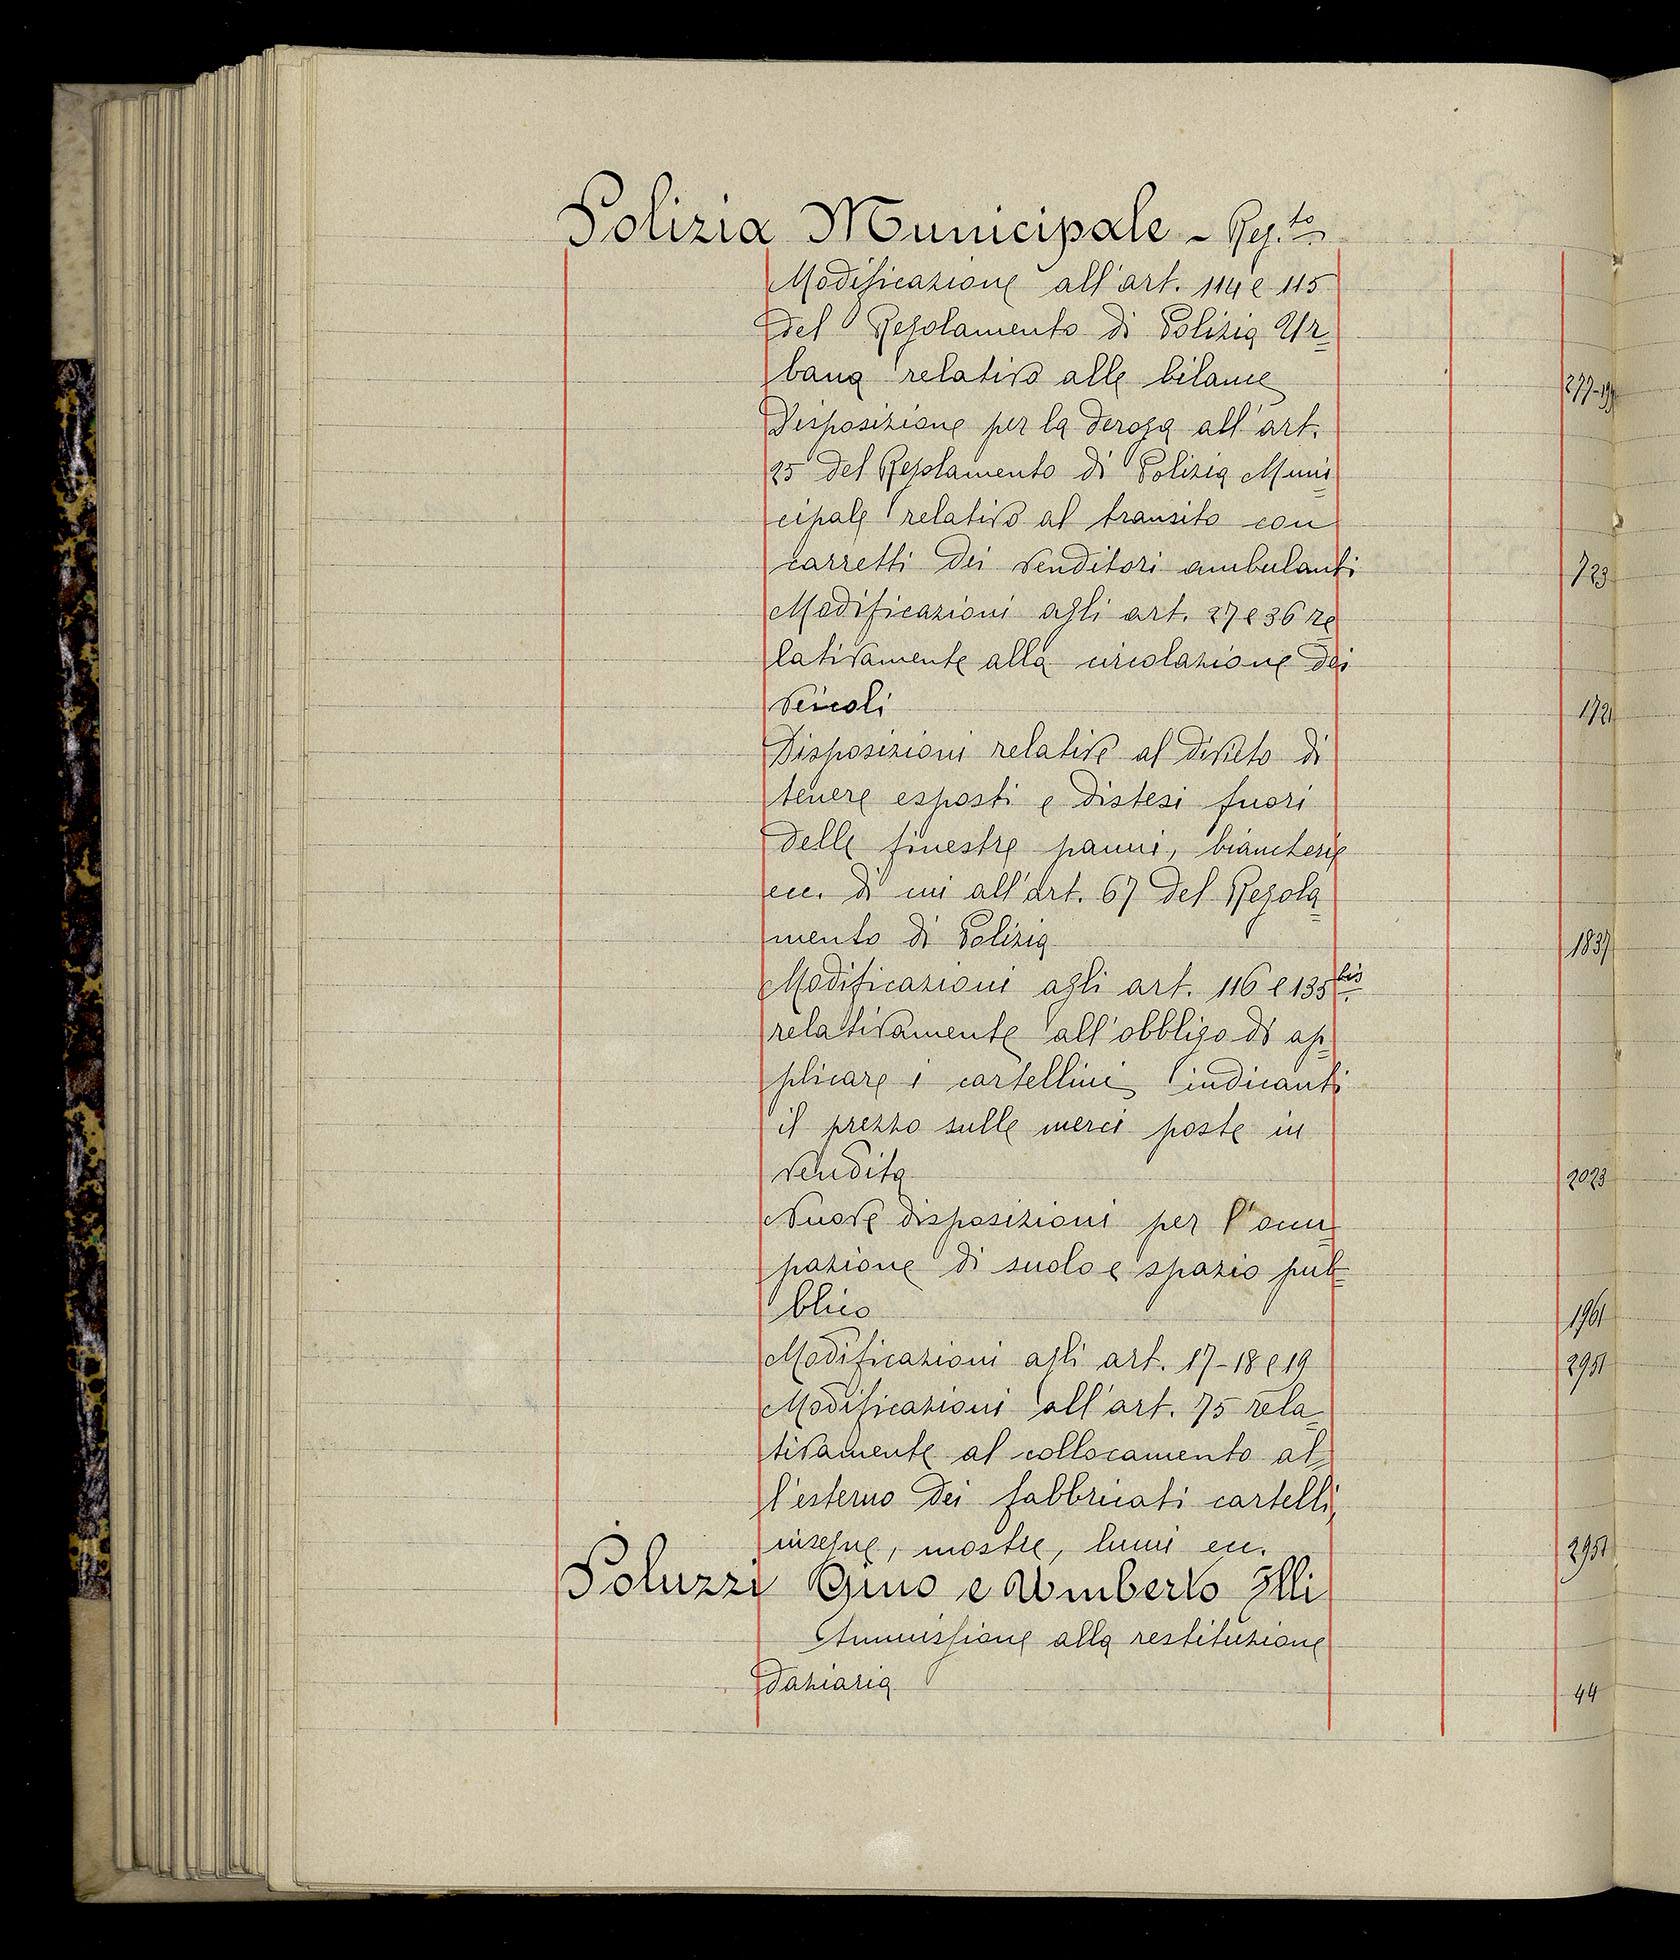 Polizia Municipale - Reg.to
Modificazione all'art. 114 e 115
del Regolamento di Polizia Ur=
bana relativo alle bilance
Disposizione per la deroga all'art.
25 del Regolamento di Polizia Muni=
cipale relativo al transito con
carretti dei venditori ambulanti 723
Modificazioni agli art. 27 e 36 re
lativamente alla circolazione dei
veicoli
Disposizioni relative al divieto di
tenere esposti e distesi fuori
delle finestre panni, biancherie
ecc. di cui all'art. 67 del Regola=
mento di Polizia 1837
Modificazioni agli art. 116 e 135 bis
relativamente all'obbligo di ap=
plicare i cartellini indicanti
il prezzo sulle merci poste in
vendita 2023
Nuove disposizioni per l'occu=
pazione di suolo e spazio pub=
blico 1961
Modificazioni agli art. 17-18 e 19 2951
Modificazioni all'art. 75 rela=
tivamente al collocamento al=
l'esterno dei fabbricati cartelli,
insegne, mostre, lumi ecc. 2951
Poluzzi Gino e Umberto F.lli
Ammissione alla restituzione
daziaria 44